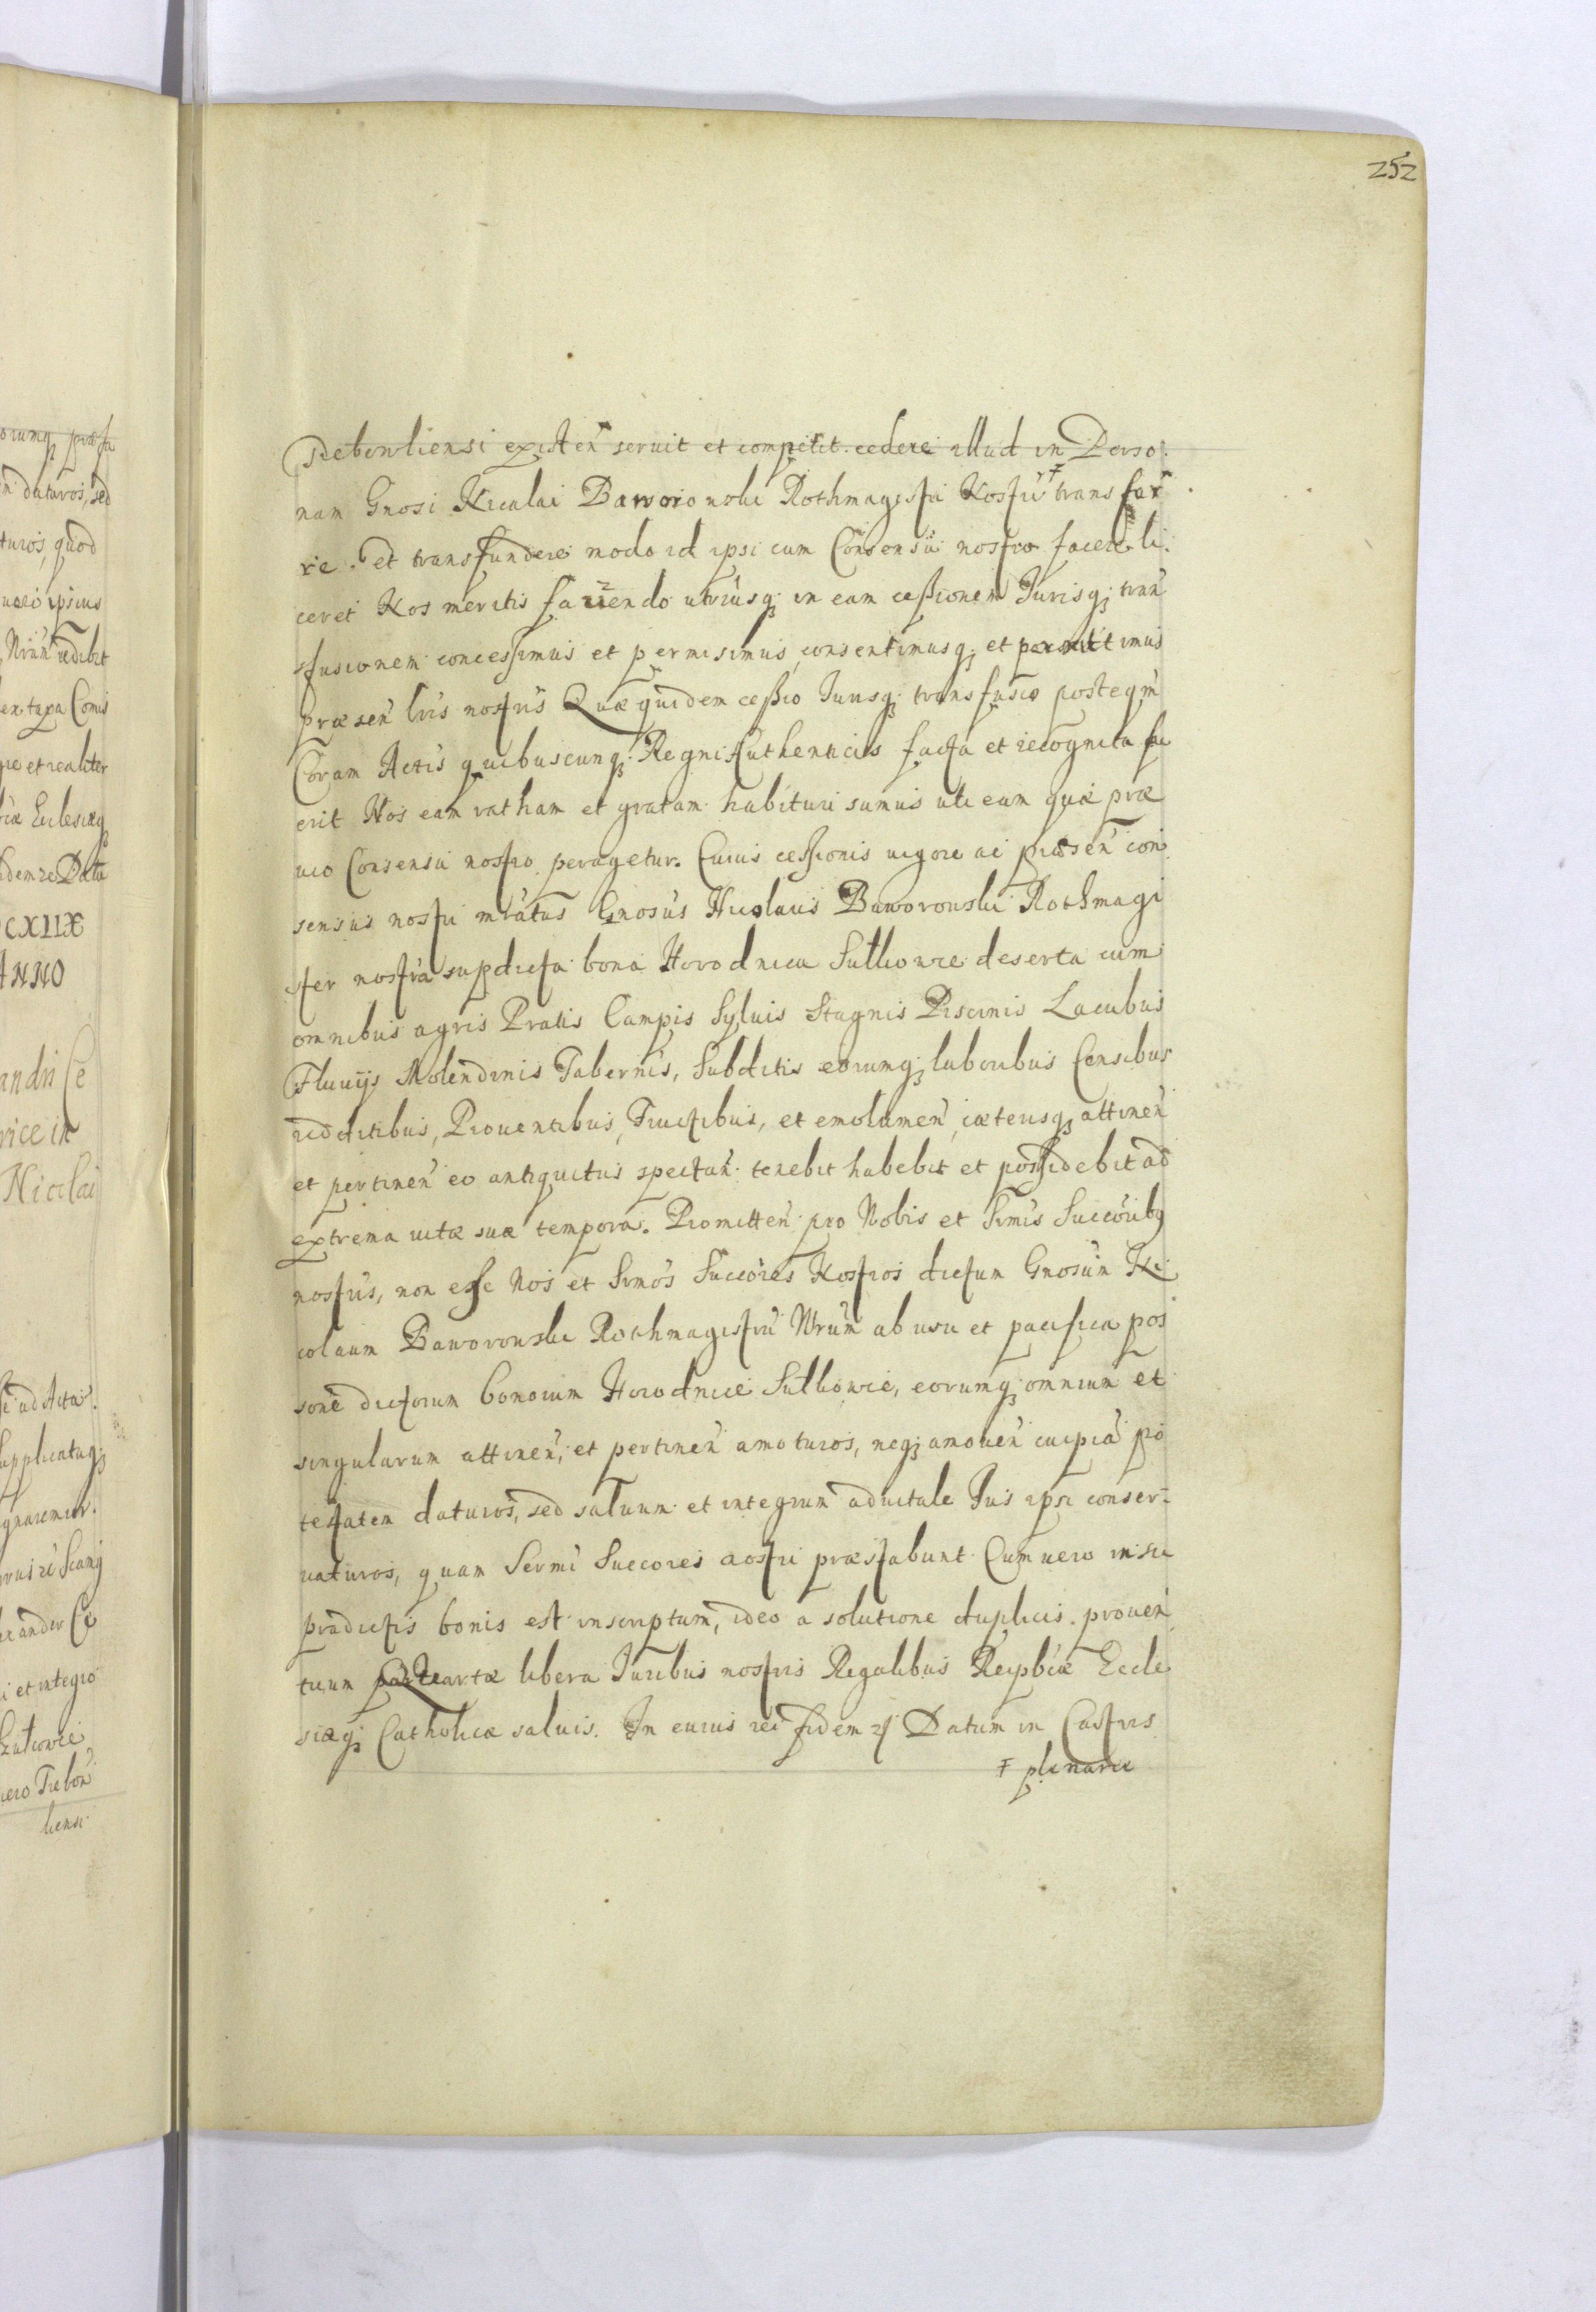 252
Trebowliensi existen̄ seruit et competit cedere illud in Perso
nam Gnosi Nicolai Baworowski Rothmagistri Nostri ŧ transfer
re et transfundere modo id ipsi cum Consensu nostro facere li
ceret Nos meritis fauendo utriusq; in eam cessionem Jurisq; tran
sfusionem concessimus et permisimus, consentimusq; et permittimus
præsen̄ lris nostris Quæquidem cessio Jurisq; transfusio postqm̄
Coram Actis quibuscunq; Regni Authenticis facta et recognita fu
erit Nos eam ratham et gratam habituri sumus uti eam quæ præ
uio Consensu nostro peragetur. Cuius cessionis uigore ac præsen̄ con
sensus nostri Gnosus Nicolaus Baworowski Rothmagi
ster noster supdicta bona Horodnica Sutkowce deserta cum
omnibus agris Pratis Campis Syluis Stagnis Piscinis Lacubus
Fluuijs Molendinis Tabernis, Subditis eorumq; laboribus Censibus
redditibus, Prouentibus, Fructibus, et emolumen̄, cæterisq; attinen̄
et pertinen̄ eo antiquitus spectan̄ tenebit habebit et possidebit ad
extrema uitæ suæ tempora. Promitten̄ pro Nobis et Srmis Succorib9
nostris, non esse Nos et Srmos Succores Nostros dictum Gnosum Ni
colaum Baworowski Rothmagistrū Nrum ab usu et pacifica pos
sone dictorum bonorum Horodnice Sutkowce, eorumq; omnium et
singularum attinen̄, et pertinen̄ amoturos, neq; amouen̄ cuipiā po
testatem daturos, sed saluum et integrum aduitale Jus ipsi conser-
uaturos, quam Sermi Succores nostri præstabunt. Cum uero in su
pradictis bonis est inscriptum, ideo a solutione duplicis prouen
tuum Quartæ libera Juribus nostris Regalibus Reipbcæ Eccle
siæq; Catholicæ saluis. In cuius rei fidem Datum in Castris
ŧ plenarie